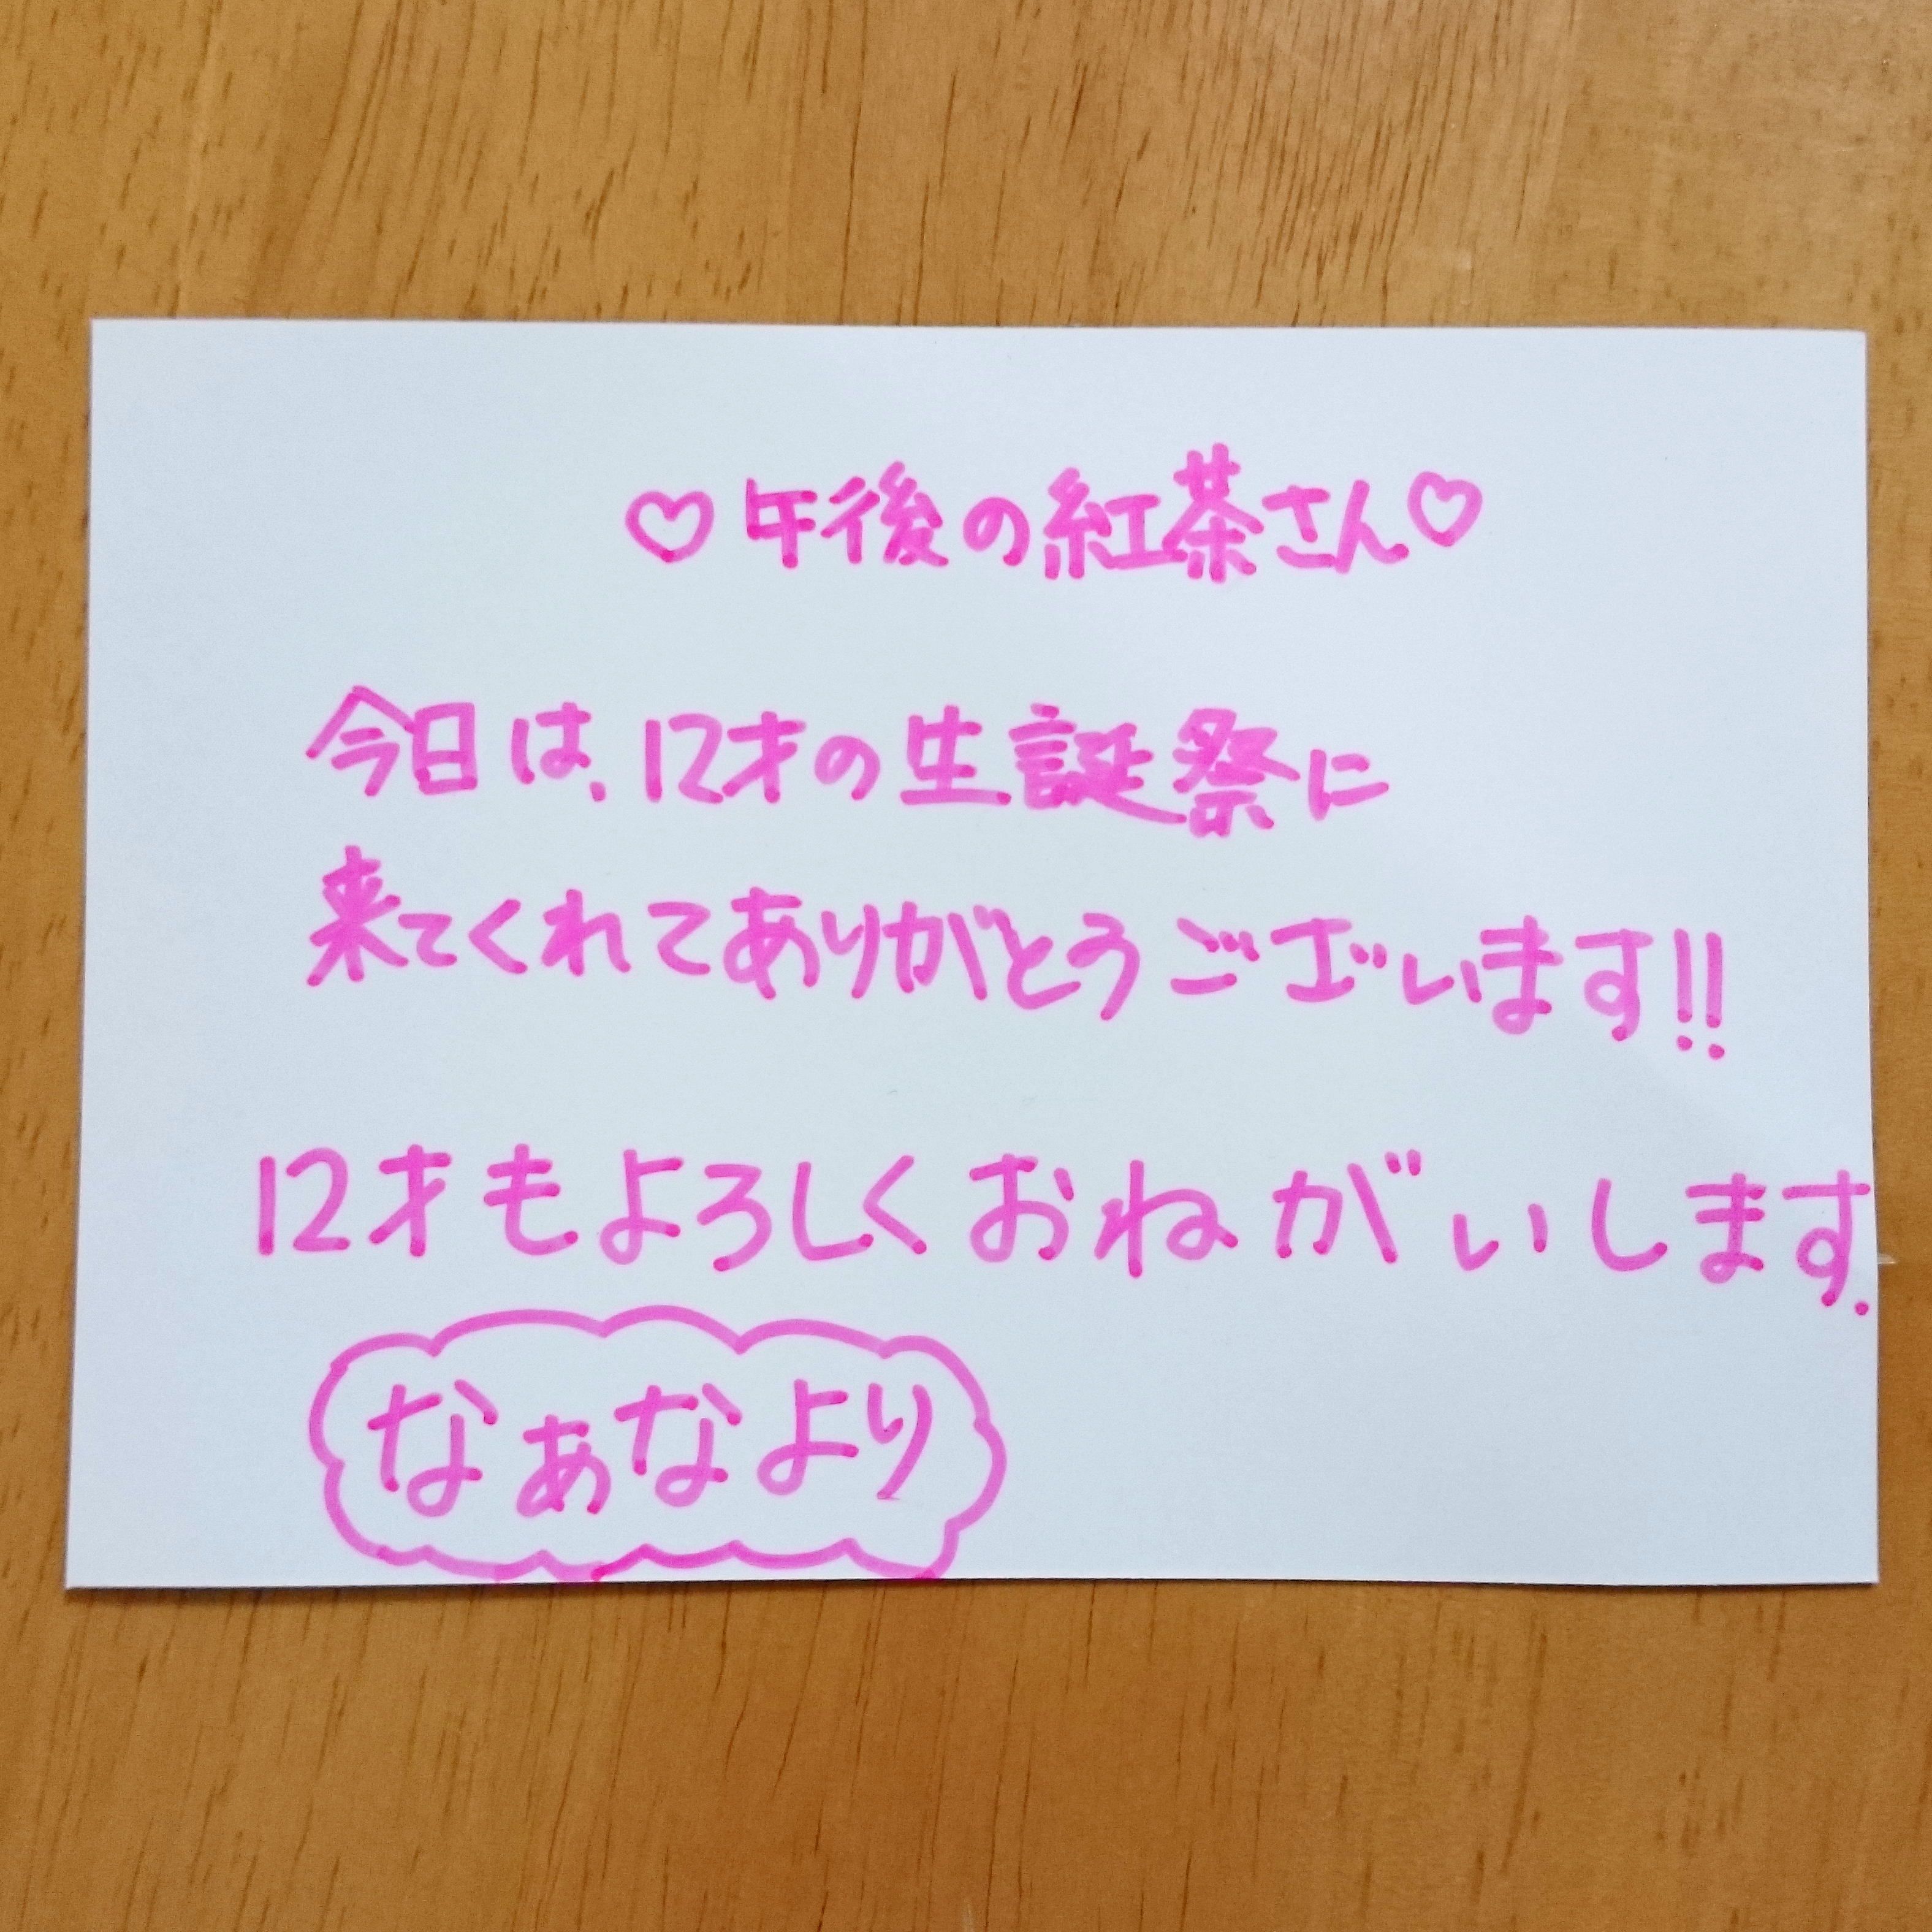 ♡午後の紅茶さん♡
今日は、12才の生誕祭に
来てくれてありがとうございます!!
12才もよろしくおねがいします.
なぁなより